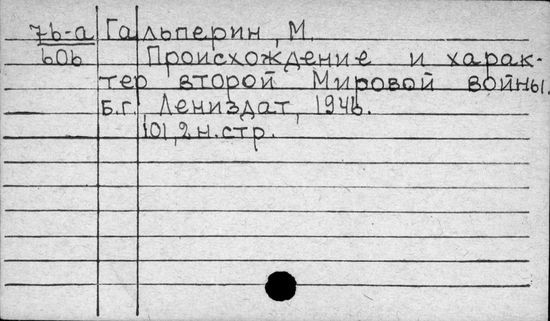 7b-a Гальперин, М.
b0b Происхождение и харак-
тер второй Мировой войны.
Б.г. Лениздат, 194b.
101,2 н.стр.